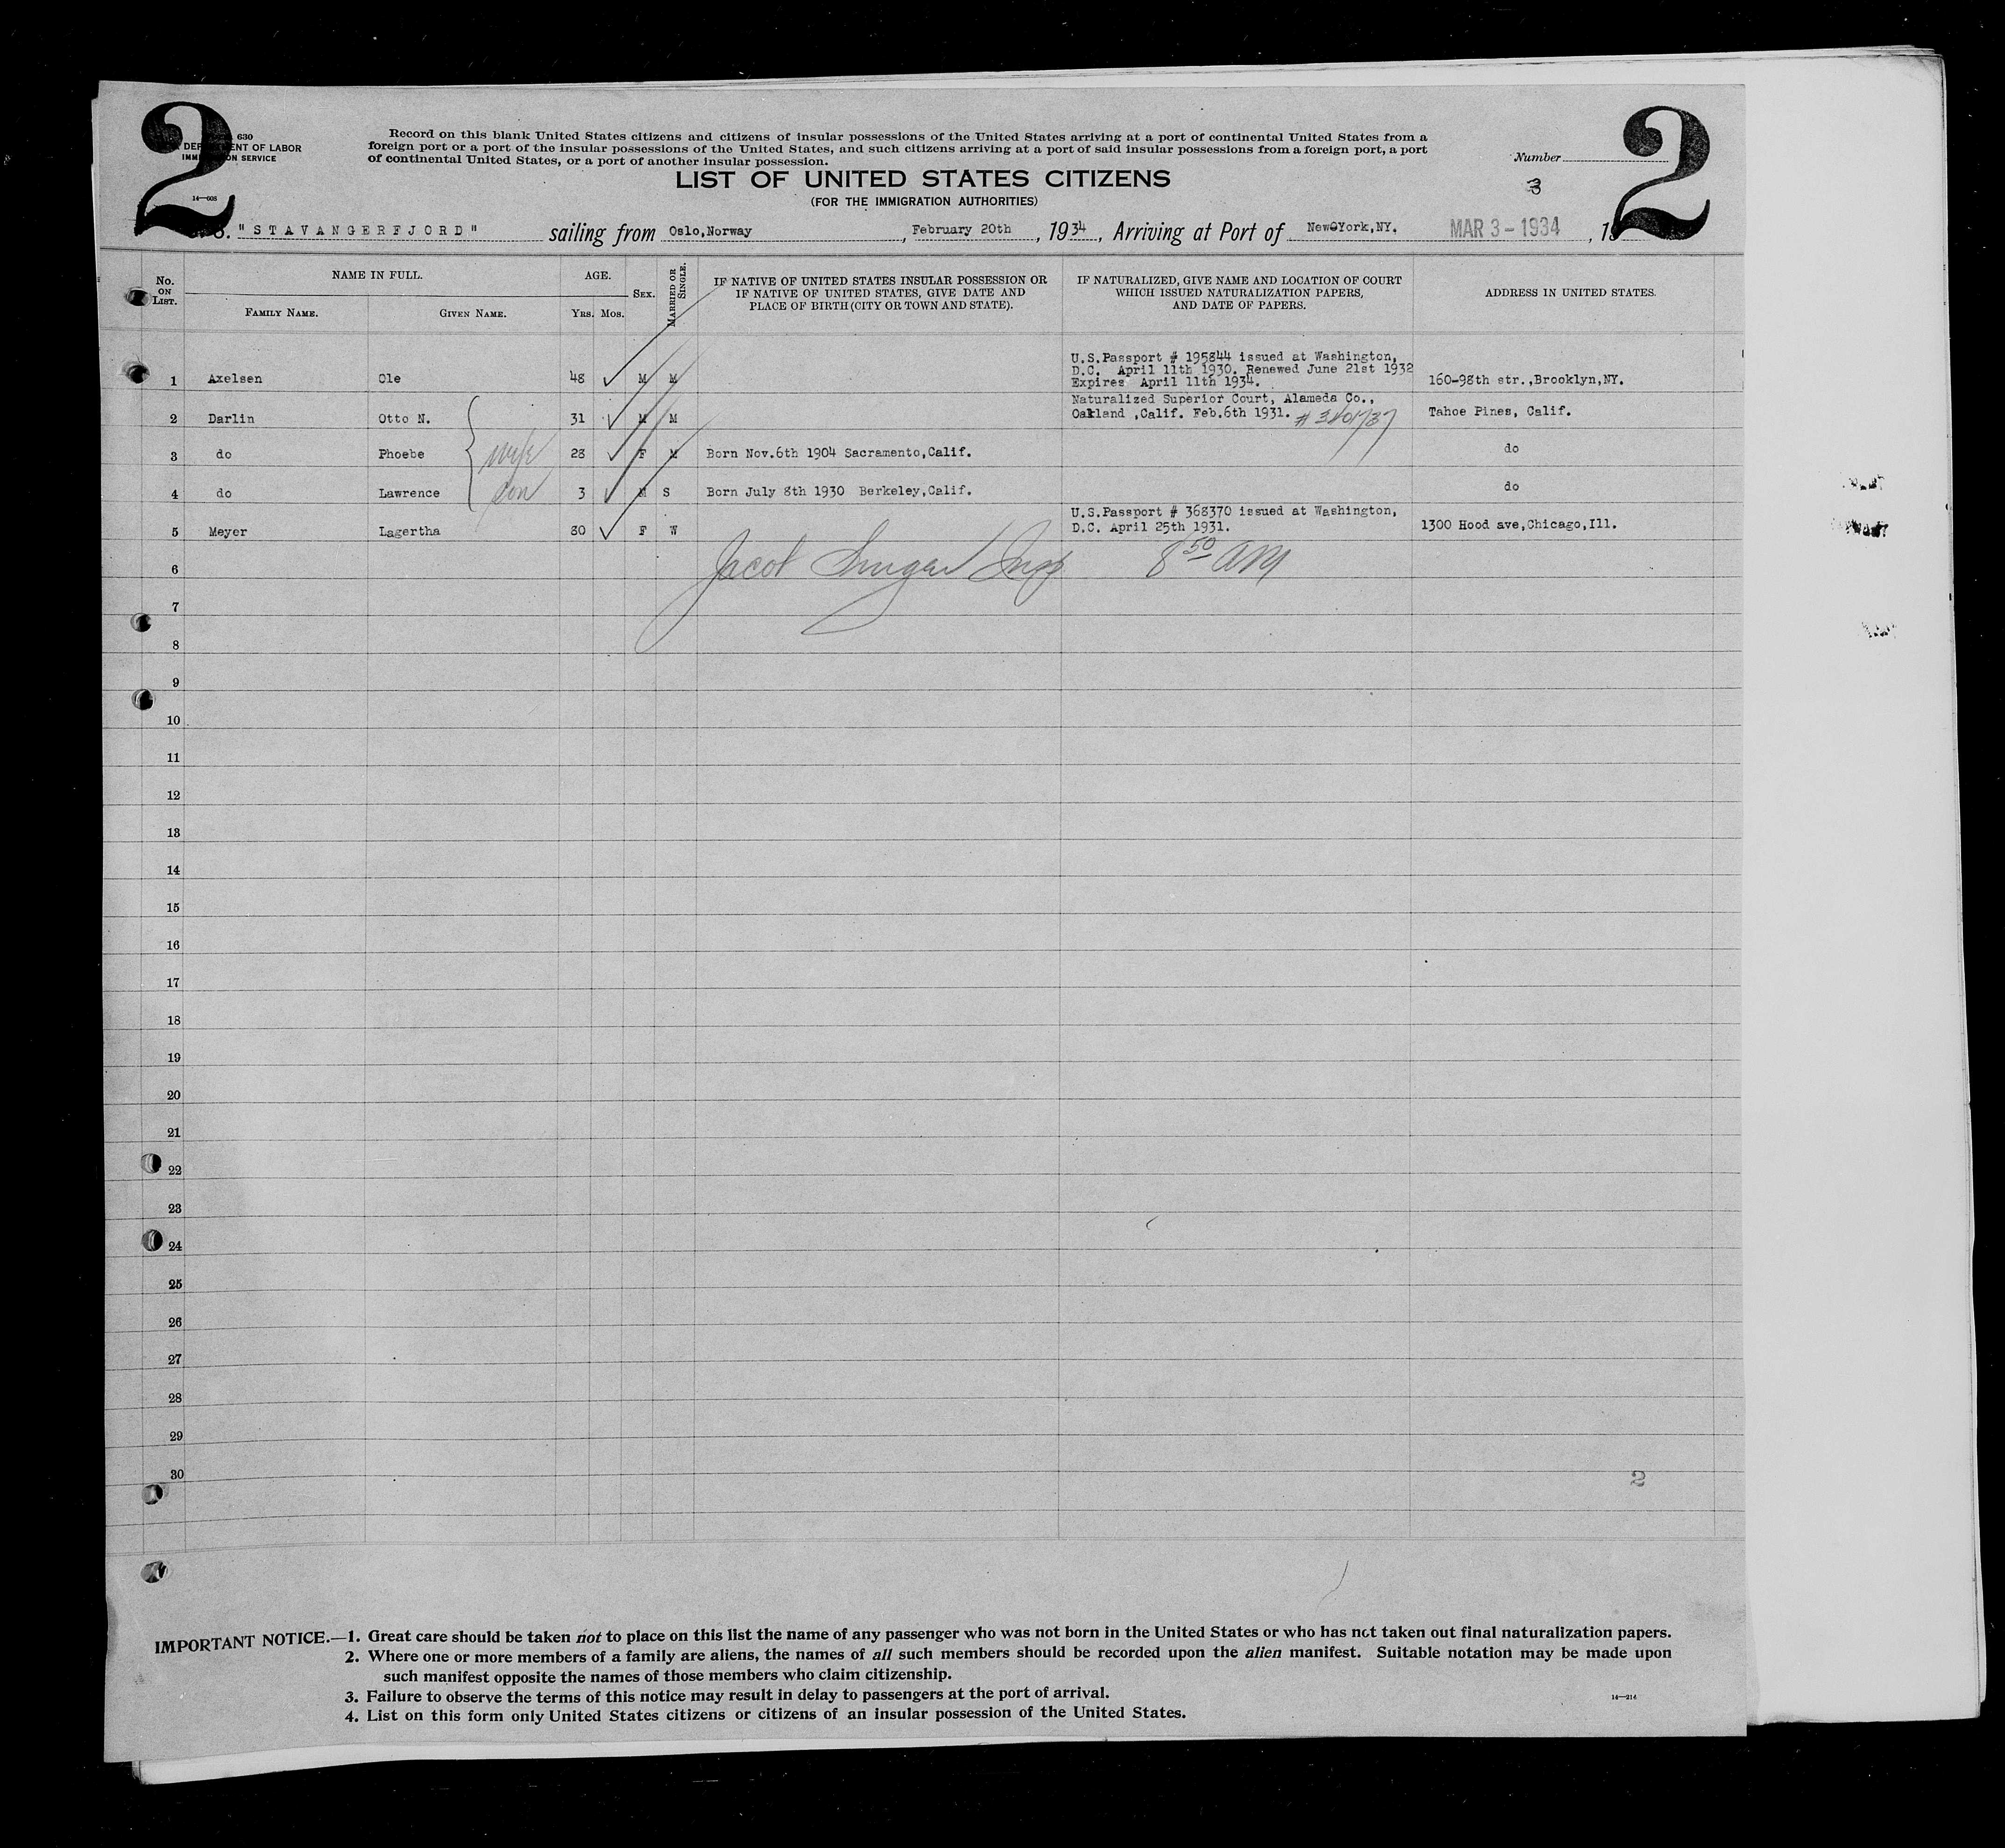 2 2
630
DEPARTMENT OF LABOR
IMMIGRATION SERVICE
14—608
Record on this blank United States citizens and citizens of insular possessions of the United States arriving at a port of continental United States from a
foreign port or a port of the insular possessions of the United States, and such citizens arriving at a port of said insular possessions from a foreign port, a port
of continental United States, or a port of another insular possession.
Number
3
LIST OF UNITED STATES CITIZENS
(FOR THE IMMIGRATION AUTHORITIES)
S. "STAVANGERFJORD" sailing from Oslo,Norway, February 20th, 1934, Arriving at Port of New York,NY. MAR 3-1934, 19
No. ON LIST. NAME IN FULL. AGE. SEX. MARRIED OR SINGLE. IF NATIVE OF UNITED STATES INSULAR POSSESSION OR IF NATIVE OF UNITED STATES, GIVE DATE AND PLACE OF BIRTH (CITY OR TOWN AND STATE). IF NATURALIZED, GIVE NAME AND LOCATION OF COURT WHICH ISSUED NATURALIZATION PAPERS, AND DATE OF PAPERS. ADDRESS IN UNITED STATES.
FAMILY NAME. GIVEN NAME. YRS. MOS.
U.S.Passport # 195844 issued at Washington,
D.C. April 11th 1930. Renewed June 21st 1932
1 Axelsen Ole 48 M M Expires April 11th 1934. 160-98th str.,Brooklyn,NY.
Naturalized Superior Court, Alameda Co.,
2 Darlin Otto N. 31 M M Oakland ,Calif. Feb.6th 1931. Tahoe Pines, Calif.
3 do Phoebe wife 28 F M Born Nov.6th 1904 Sacramento,Calif. do
4 do Lawrence son 3 M S Born July 8th 1930 Berkeley,Calif. do
U.S.Passport # 368370 issued at Washington,
5 Meyer Lagertha 80 F W D.C. April 25th 1931. 1300 Hood ave,Chicago,Ill.
6 Jacob Insp 8 50 AM
7
8
9
10
11
12
13
14
15
16
17
18
19
20
21
22
23
24
25
26
27
28
29
30 2
IMPORTANT NOTICE.—1. Great care should be taken not to place on this list the name of any passenger who was not born in the United States or who has not taken out final naturalization papers.
2. Where one or more members of a family are aliens, the names of all such members should be recorded upon the alien manifest. Suitable notation may be made upon
such manifest opposite the names of those members who claim citizenship.
3. Failure to observe the terms of this notice may result in delay to passengers at the port of arrival.
14—214
4. List on this form only United States citizens or citizens of an insular possession of the United States.